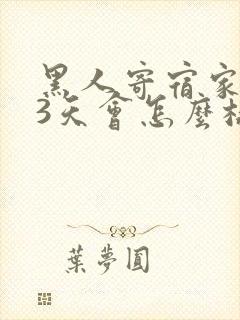 黑人寄宿家
3天會怎麼
葉夢圓